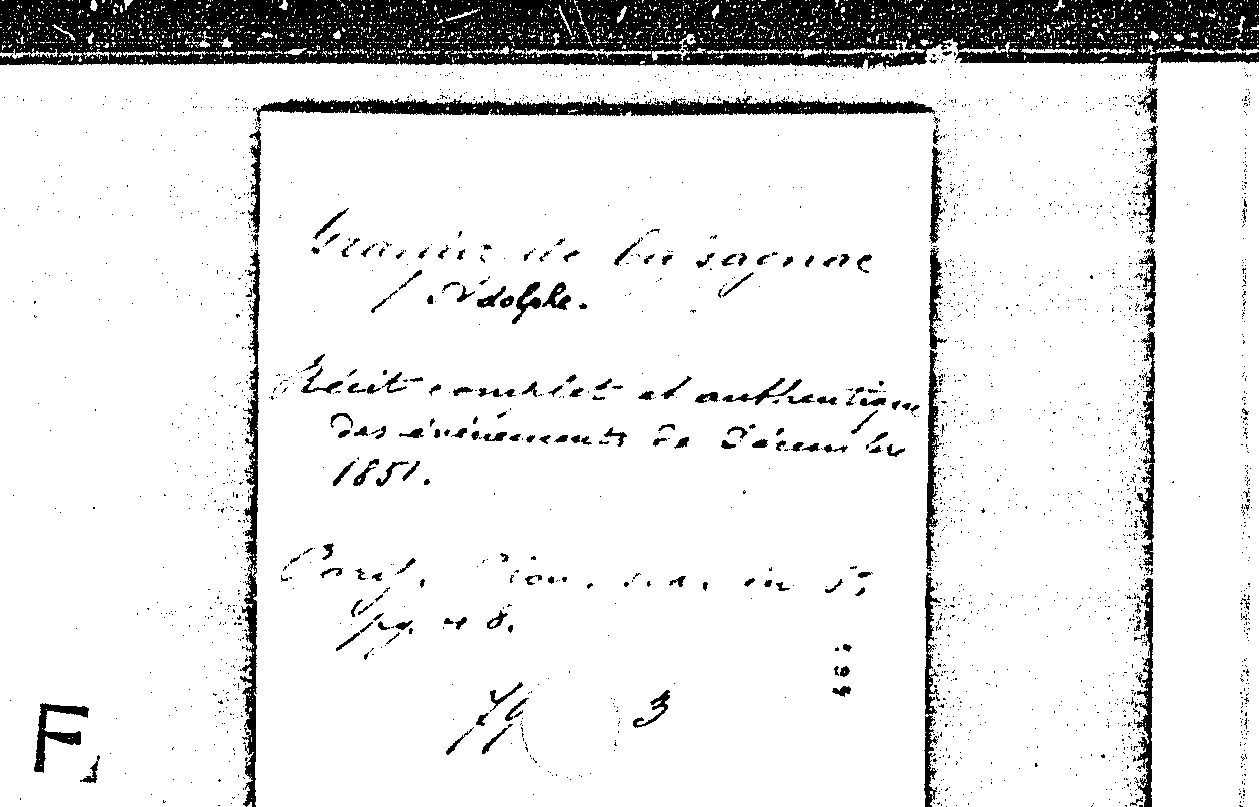 Granier de Cassagnac
/ Adolphe.
Récit complet et authentique
des événements de Décembre
1851.
Paris, Plon, s.d. in 8°,
pg. 48.
79 3
F